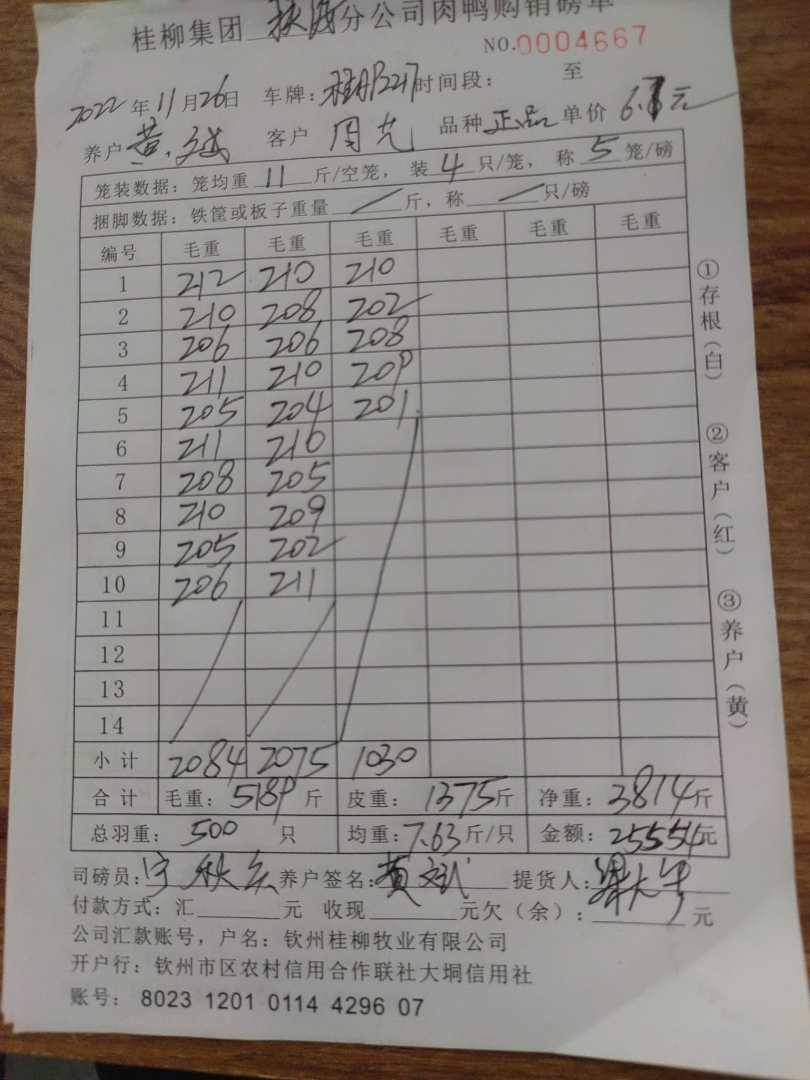 桂柳集团 分公司肉鸭购销磅单
NO.0004667
2022年11月26日 车牌: 时间段: 至
养户 黄 客户 周 品种 正品 单价 6.7元
笼装数据：笼均重 11 斤/空笼，装 4 只/笼，称 5 笼/磅
捆脚数据：铁筐或板子重量 / 斤，称 / 只/磅
编号 毛重 毛重 毛重 毛重 毛重 毛重
1 212 210 210
2 210 208 202
3 206 206 208
4 211 210 209
5 205 204 201
6 211 210
7 208 205
8 210 209
9 205 202
10 206 211
11
12
13
14
小计 2084 2075 1030
合计 毛重：5189斤 皮重：1375斤 净重：3814斤
总羽重：500只 均重：7.63斤/只 金额：25554元
司磅员： 养户签名：黄斌 提货人：
付款方式：汇 元 收现 元欠（余）： 元
公司汇款账号，户名：钦州桂柳牧业有限公司
开户行：钦州市区农村信用合作联社大垌信用社
账号：8023 1201 0114 4296 07
①存根（白）
②客户（红）
③养户（黄）